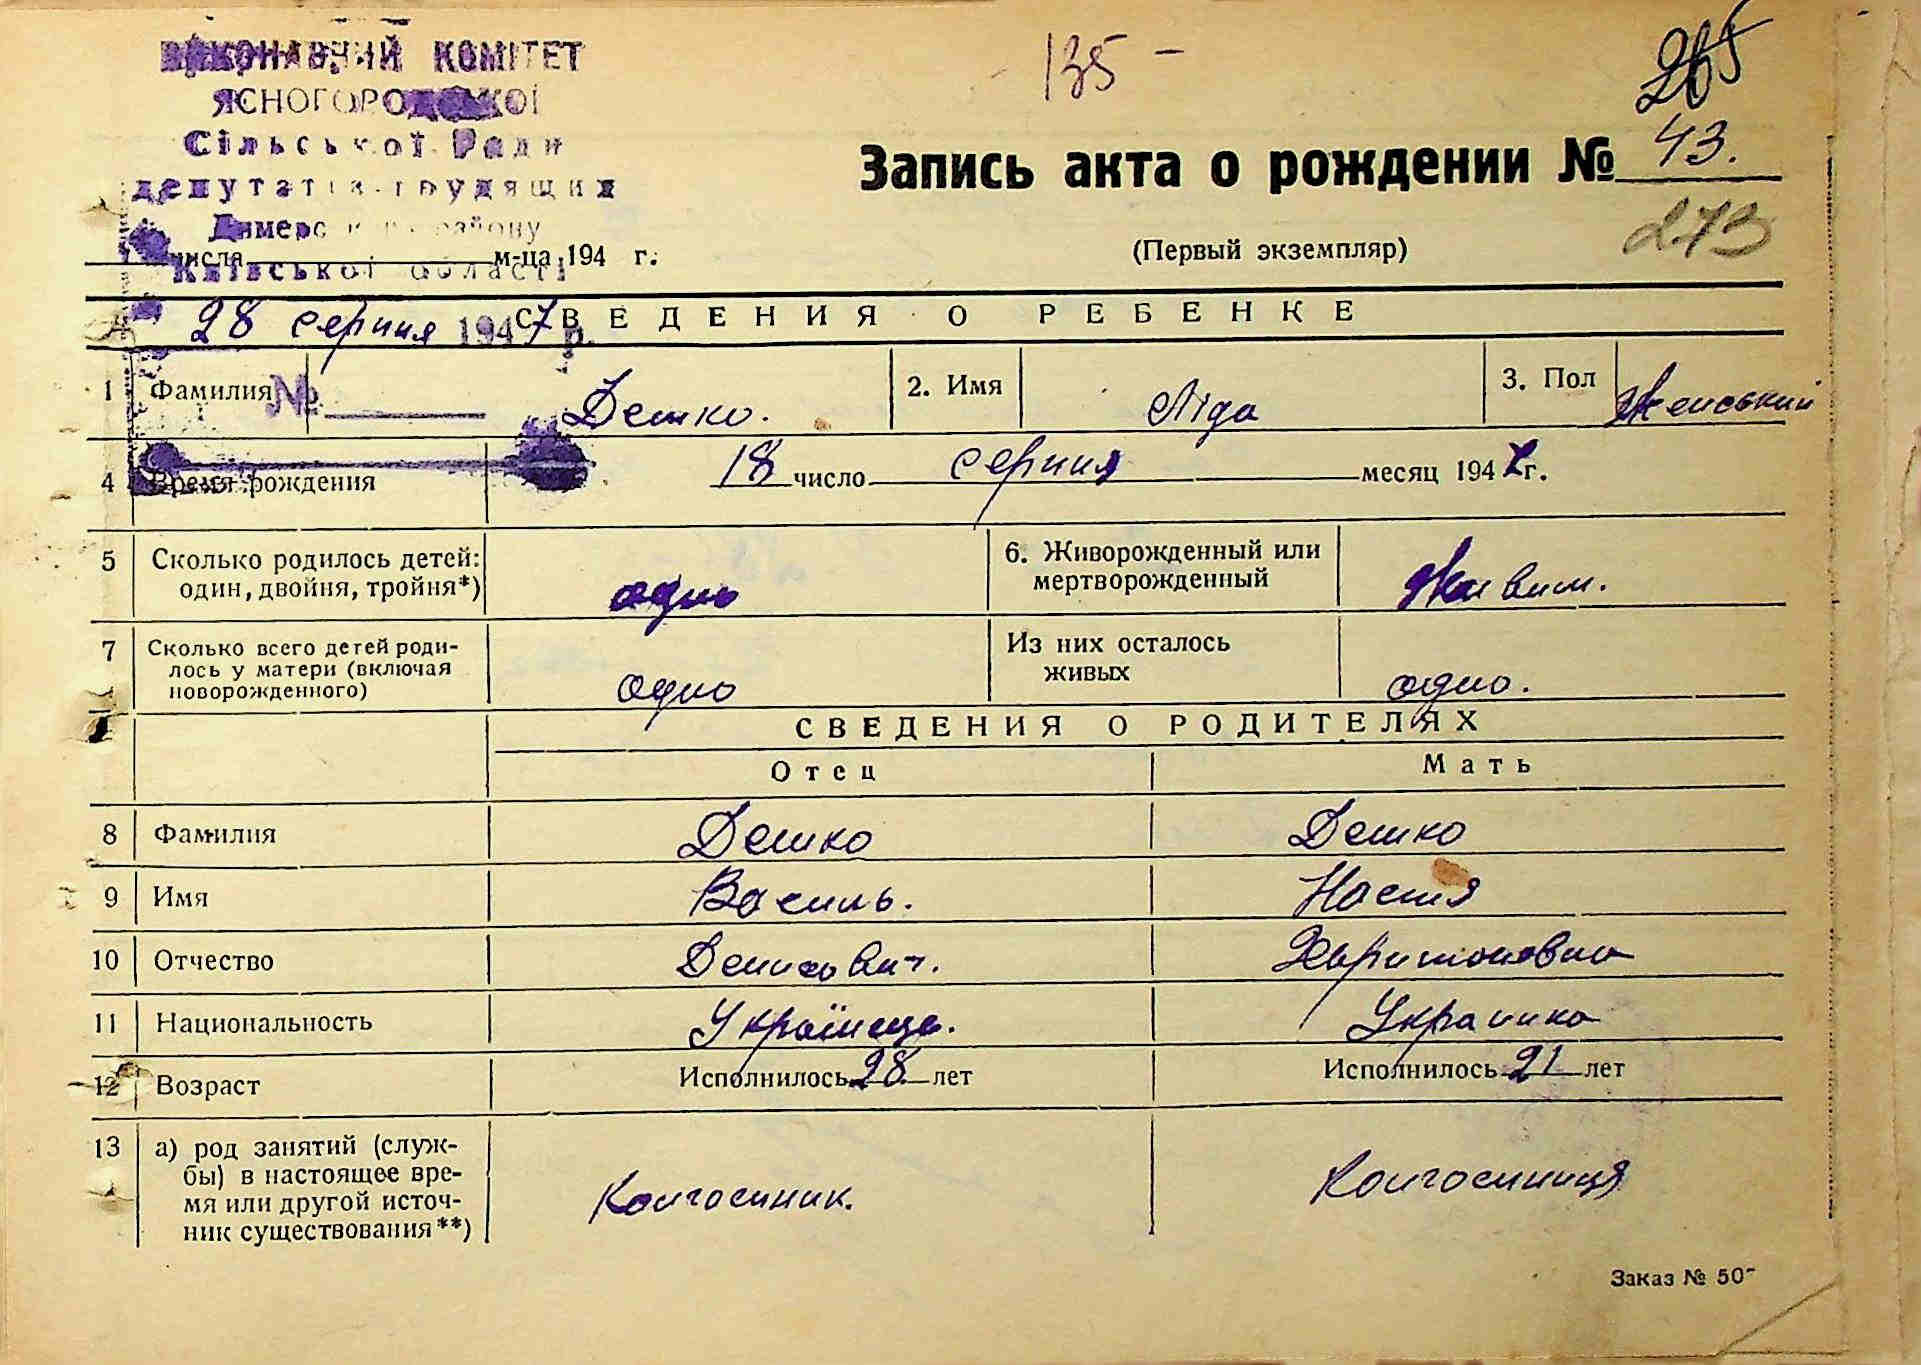 135 -
265
ВИКОНАВЧИЙ КОМІТЕТ
ЯСНОГОРОДСЬКОЇ
Сільської Ради
депутатів трудящих
Димерського району
Київської області
Запись акта о рождении № 43.
273
числа м-ца 194 г.
(Первый экземпляр)
28 серпня 1947 р.
СВЕДЕНИЯ О РЕБЕНКЕ
№
1 Фамилия Дешко. 2. Имя Ліда 3. Пол Женський
4 Время рождения 18 число серпня месяц 1947 г.
5 Сколько родилось детей: один, двойня, тройня*) одно 6. Живорожденный или мертворожденный Живим.
7 Сколько всего детей родилось у матери (включая новорожденного) одно Из них осталось живых одно.
СВЕДЕНИЯ О РОДИТЕЛЯХ
Отец Мать
8 Фамилия Дешко Дешко
9 Имя Василь. Настя
10 Отчество Денисович. Харитоновна
11 Национальность Українець. Украинка
12 Возраст Исполнилось 28 лет Исполнилось 21 лет
13 а) род занятий (служ-
бы) в настоящее вре-
мя или другой источ-
ник существования**) Колгоспник. Колгоспниця
Заказ № 507